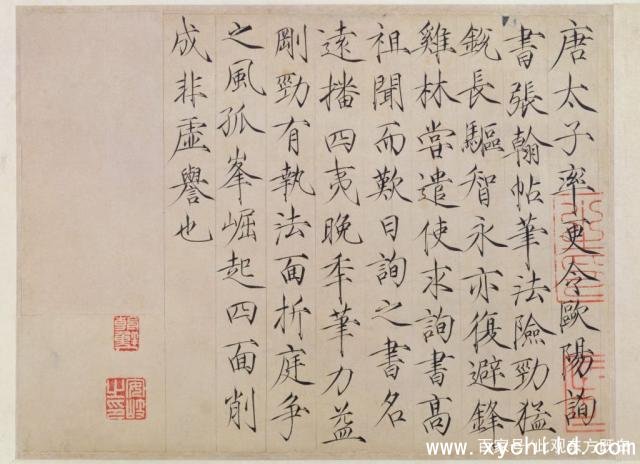 唐太子率更令歐陽詢
書張翰帖筆法險勁猛
銳長驅智永亦復避鋒
雞林嘗遣使求詢書高
祖聞而歎曰詢之書名
遠播四夷晚年筆力益
剛勁有執法面折庭爭
之風孤峯崛起四面削
成非虛譽也
www.xychi1d.com